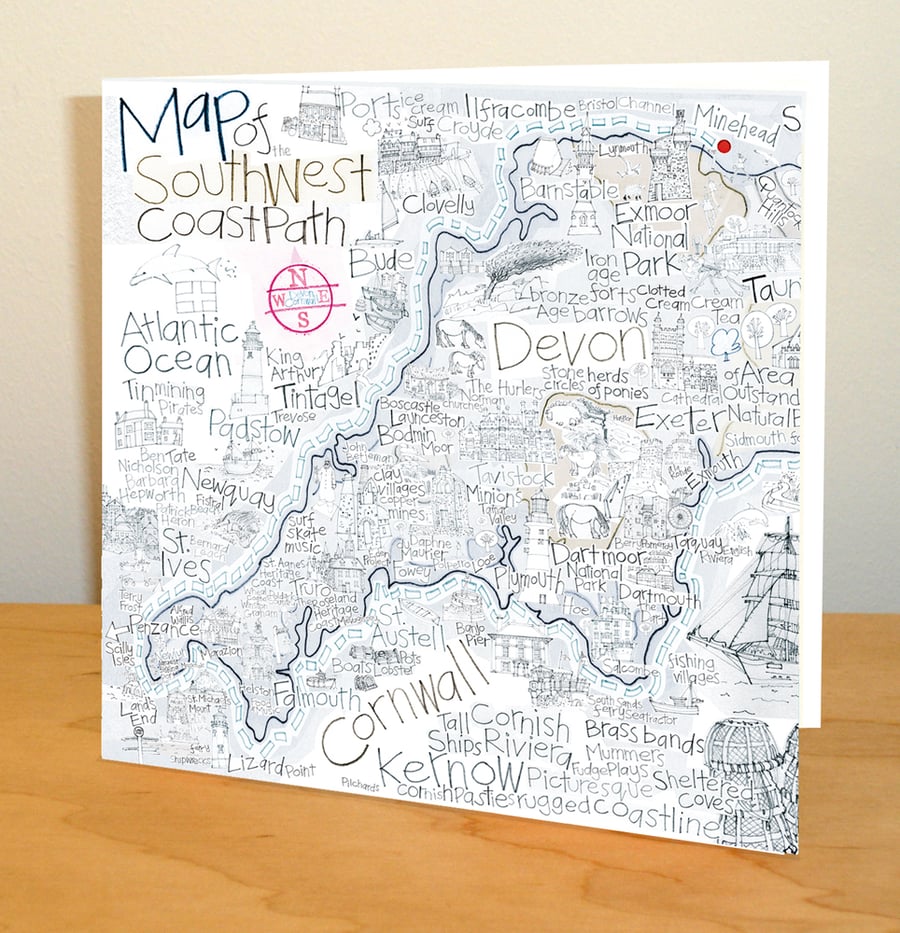 Map of
the
SouthWest
CoastPath
Ports
ice cream
Surf
Ilfracombe
Croyde
Bristol Channel
Minehead
S
Lynmouth
Clovelly
Barnstable
Exmoor
National
Park
Bude
N
W E
S
Iron
age
forts
bronze
Age barrows
Clotted
Cream
Cream
Tea
Taun
Atlantic
Ocean
Devon
King
Arthur
Tintagel
stone herds
circles of ponies
Cathedral
of Area
Outstand
Natural
Tin mining
Pirates
The Hurler
Norman
churches
Boscastle
Launceston
Exeter
Padstow
Trevose
Bodmin
Moor
Sidmouth
Exmouth
Ben Tate
Nicholson
Barbara
Hepworth
Newquay
Fistral
Patrick
Heron
clay
villages
copper
mines
Tavistock
Minions
Tamar
Valley
St.
Ives
Bernard
surf
skate
music
Daphne
Maurier
Fowey
Looe
Dartmoor
National
Park
Torquay
English
Riviera
St. Agnes
Heritage
coast
Plymouth
Dartmouth
Terry
Frost
Alfred
Wallis
Truro
Roseland
Heritage
Coast
Hoe
Penzance
Scilly
Isles
Marazion
St.
Austell
Banjo
Pier
Boats
Pots
Lobster
Salcombe
fishing
villages...
Lands
End
St. Michaels
Mount
Falmouth
Cornwall
South Sands
ferry Seatractor
Shipwrecks
Lizard Point
Tall
Ships
Cornish
Riviera
Brass bands
Mummers
Plays
Fudge
Kernow
Picturesque
Sheltered
Coves
Pilchards
Cornish Pasties
rugged Coastline